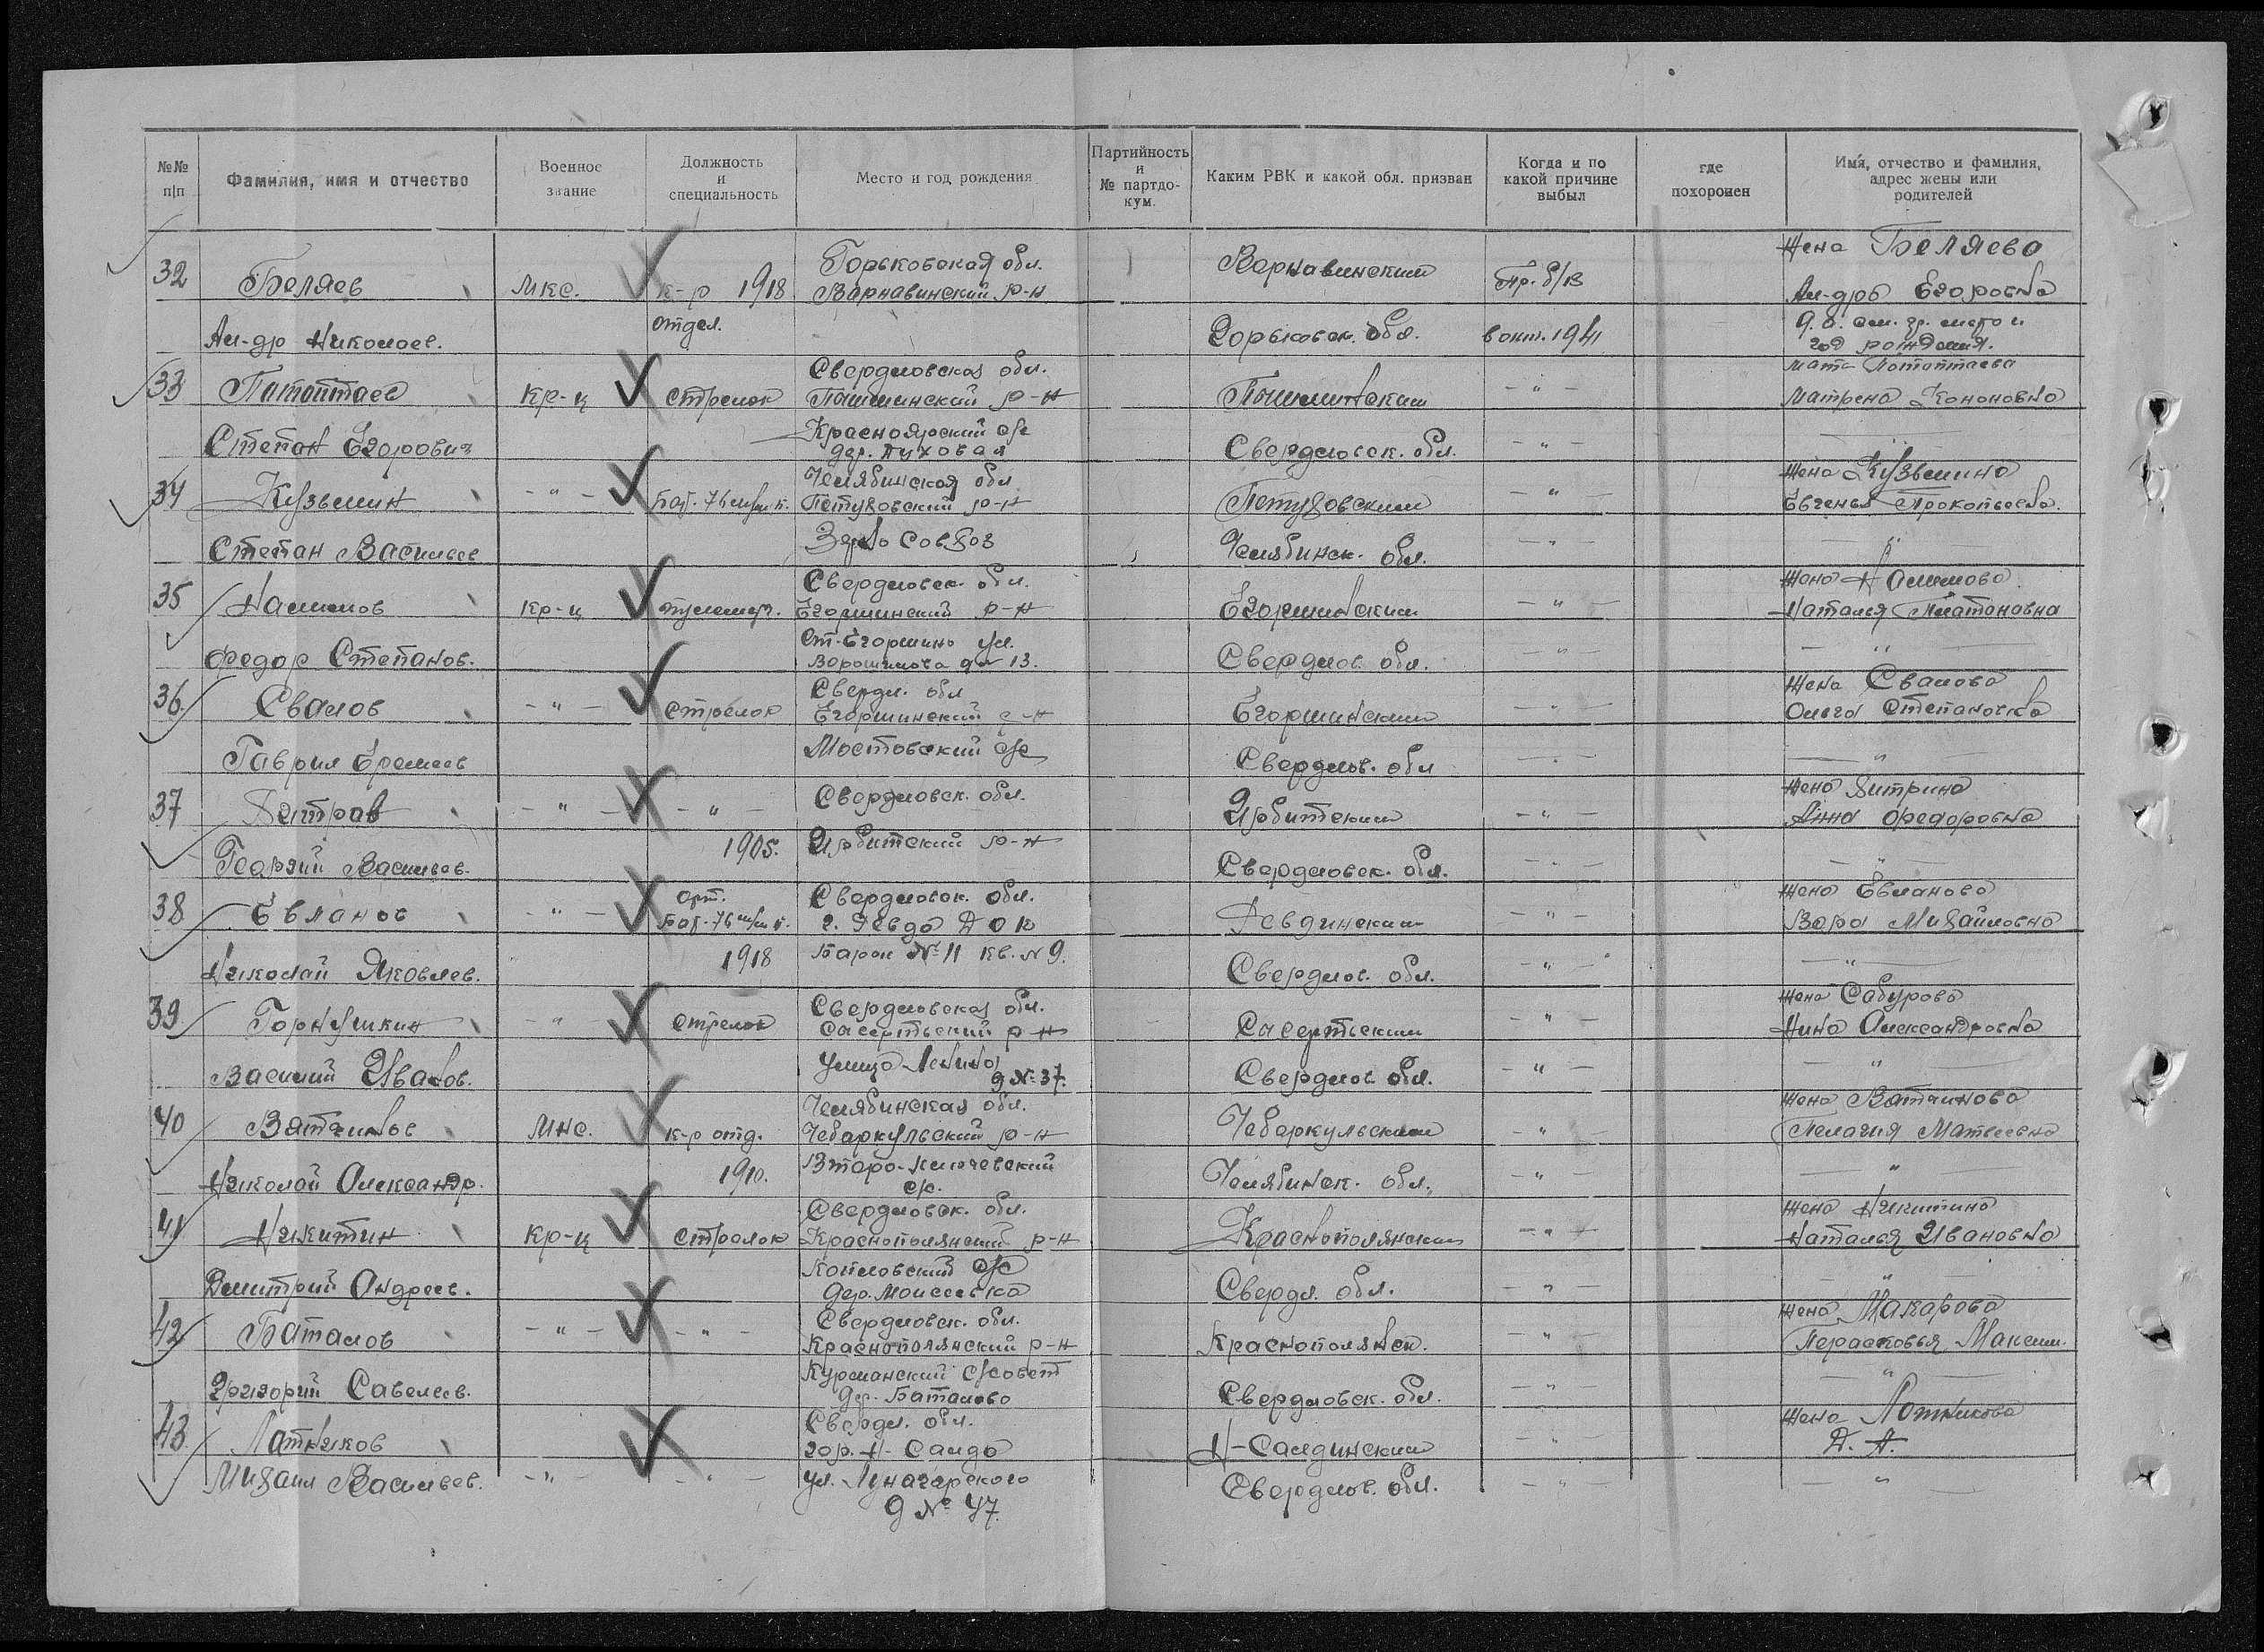 №№ п/п
Фамилия, имя и отчество
Военное звание
Должность и специальность
Место и год рождения
Партийность и № партдокум.
Каким РВК и какой обл. призван
Когда и по какой причине выбыл
где похоронен
Имя, отчество и фамилия, адрес жены или родителей
Горьковская обл. Жена Беляева
32 Беляев мкс. к-р 1918 Варнавинский р-н Варнавинским Пр. б/в Ал-дра Егоровна
Ал-др Николаев. отдел. Горьковск. обл. в окт. 1941 год рождения.
Свердловская обл. мать Потоптаева
33 Патоптаев Кр-ц стрелок Пышминский р-н Пышминским - " - Матрена Кононовна
Красноярский с/с
Степан Егорович дер. Духовая Свердловск. обл. - " - "
Челябинская обл. Жена Кузьмина
34 Кузьмин - " - Бат. 76 м/м п. Петуховский р-н Петуховским - " - Евгенья Прокопьевна.
Степан Васильев Зерно Совхоз Челябинск. обл. - " - "
Свердловск. обл. Жена
35 кр-ц пулемет. Егоршинский р-н Егоршинским - " - Наталья Платоновна
Ст. Егоршино ул.
Федор Степанов. Ворошилова д 13. Свердлов. обл. - " - "
Свердл. обл Жена Свалова
36 Свалов - " - Стрелок Егоршинский р-н Егоршинским - " - Ольга Степановна
Гаврил Еремеев Мостовский с/с Свердлов. обл - " - "
Свердловск. обл. Жена
37 - " - - " - Ирбитским - " - Анна Федоровна
Георгий Васильев. 1905. Ирбитский р-н Свердловск. обл. - " - "
арт. Свердловск. обл. Жена Евланова
38 Евланов - " - Бат. 76 м/м п. г. Ревда ДОК Ревдинским - " - Вера Михайловна
Николай Яковлев. 1918 Барак № 11 кв. № 9. Свердлов. обл. - " - "
Свердловская обл. Жена Сабурова
39 Горнушкин - " - стрелок Сасертьский р-н Сасертьским - " - Нина Александровна
Василий Иванов. Улица Ленина д № 37. Свердлов обл. - " - "
Челябинская обл. Жена
40 мнс. к-р отд. Чебаркульский р-н Чебаркульским - " - Пелагия Матвеевна
Николай Александр. 1910. Втаро-Ключевский с/с. Челябинск. обл. - " - "
Свердловск. обл. Жена Никитина
41 Никитин кр-ц стрелок Краснополянский р-н Краснополянским - " - Наталья Ивановна
с/с
Дмитрий Андреев. дер. Моисеевка Свердл. обл. - " - "
Свердловск. обл. Жена Макарова
42 Баталов - " - - " - Краснополянский р-н Краснополянск. - " - Перасковья Максим.
Курманский с/совет
Григорий Савелеев. Дер. Баталово Свердловск. обл. - " - "
Свердл. обл. Жена Лотникова
43 Латников гор. Н- Салда Н-Салдинским - " - Д. А.
Михаил Васильев. - " - - " - ул. Луначарского Свердлов. обл. - " - "
д № 47.